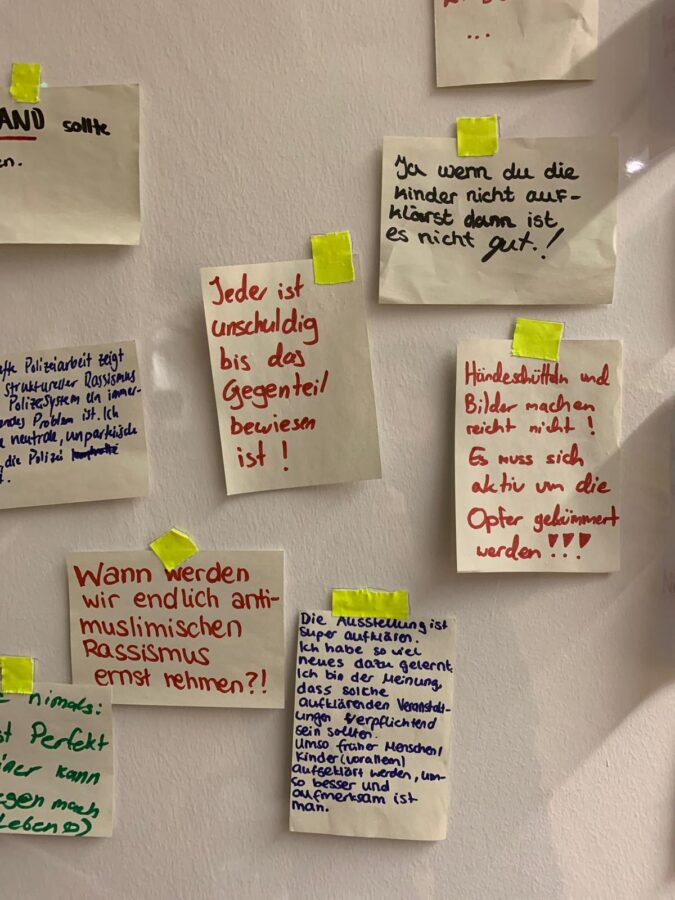 ...
AND sollte
en.
Ja wenn du die
Kinder nicht auf-
klärst dann ist
es nicht gut.!
Jeder ist
unschuldig
bis das
Gegenteil
bewiesen
ist !
Händeschütteln und
Bilder machen
reicht nicht !
Es muss sich
aktiv um die
Opfer gekümmert
werden !!!
afte Polizeiarbeit zeigt
struktureller Rassismus
Polizeisystem ein immer-
endes Problem ist. Ich
e neutrale, unparteiische
die Polizei
t.
Wann werden
wir endlich anti-
muslimischen
Rassismus
ernst nehmen?!
Die Ausstellung ist
super aufklären.
Ich habe so viel
neues dazu gelernt.
Ich bin der Meinung,
dass solche
aufklärenden Veranstalt-
ungen verpflichtend
sein sollten.
Umso früher Menschen/
Kinder (vorallem)
aufgeklärt werden, um-
so besser und
aufmerksam ist
man.
nimals:
st Perfekt
iner kann
egen mach
Leben